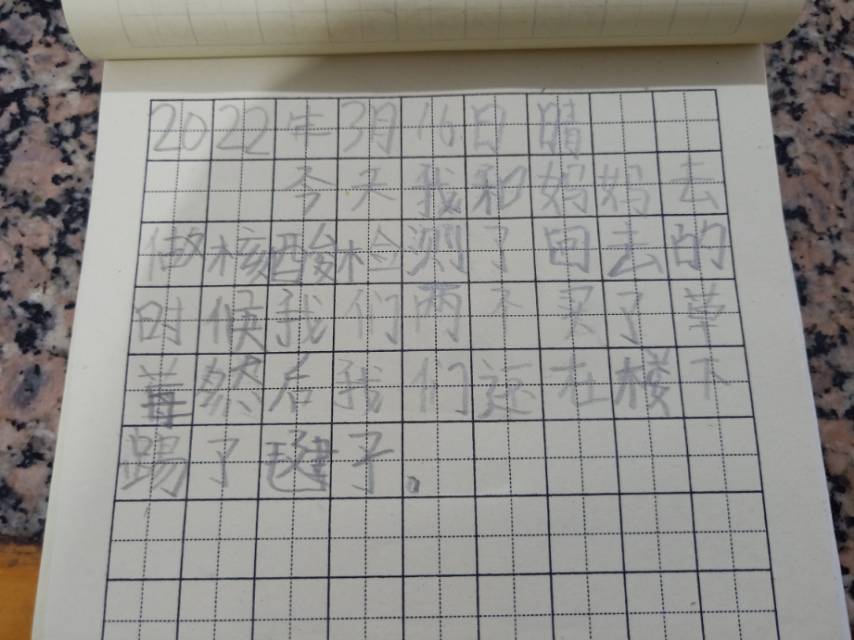 2022年3月16日 晴
今天我和妈妈去
做核酸检测了回去的
时候我们两个买了草
莓然后我们还在楼下
踢了毽子.